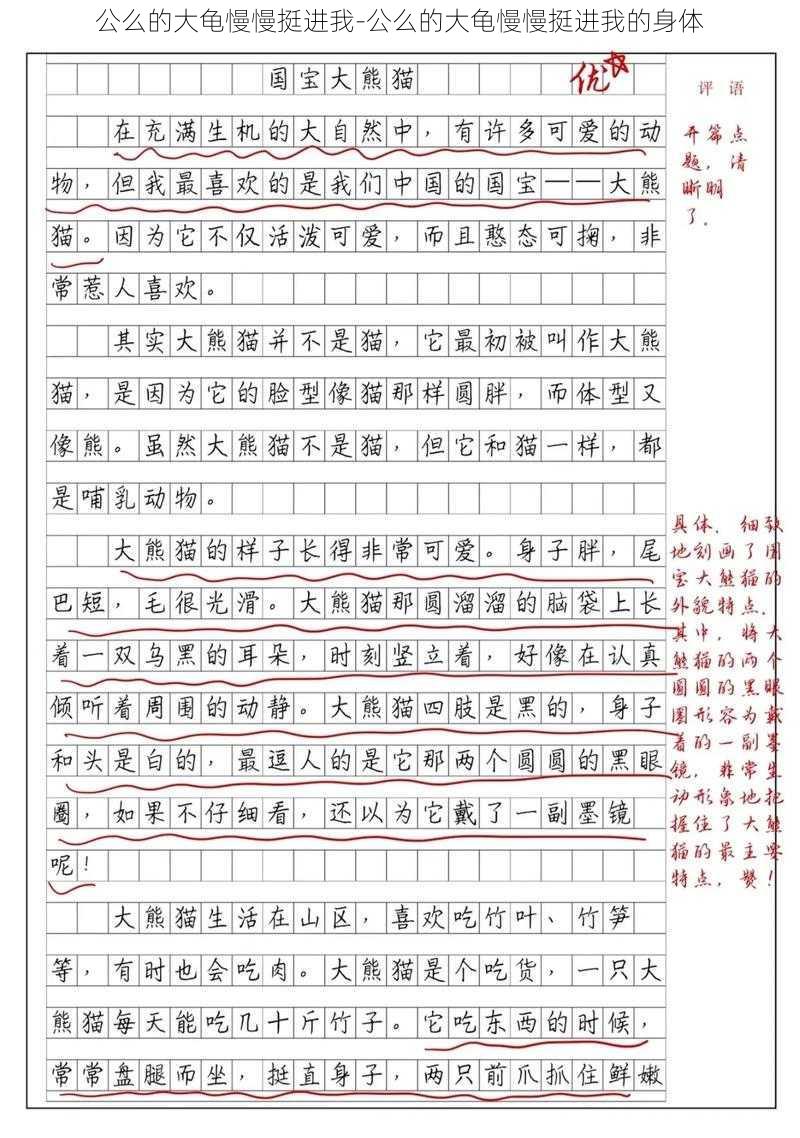 公么的大龟慢慢挺进我-公么的大龟慢慢挺进我的身体
国宝大熊猫
优
评语
在充满生机的大自然中，有许多可爱的动
物，但我最喜欢的是我们中国的国宝——大熊
猫。因为它不仅活泼可爱，而且憨态可掬，非
常惹人喜欢。
开篇点
题，清
晰明
了.
其实大熊猫并不是猫，它最初被叫作大熊
猫，是因为它的脸型像猫那样圆胖，而体型又
像熊。虽然大熊猫不是猫，但它和猫一样，都
是哺乳动物。
大熊猫的样子长得非常可爱。身子胖，尾
巴短，毛很光滑。大熊猫那圆溜溜的脑袋上长
着一双乌黑的耳朵，时刻竖立着，好像在认真
倾听着周围的动静。大熊猫四肢是黑的，身子
和头是白的，最逗人的是它那两个圆圆的黑眼
圈，如果不仔细看，还以为它戴了一副墨镜
呢！
具体.细致
地刻画了国
宝大熊猫的
外貌特点.
其中，将大
熊猫的两个
圆圆的黑眼
圈形容为戴
着的一副墨
镜，非常生
动形象地把
握住了大熊
猫的最主要
特点，赞！
大熊猫生活在山区，喜欢吃竹叶、竹笋
等，有时也会吃肉。大熊猫是个吃货，一只大
熊猫每天能吃几十斤竹子。它吃东西的时候，
常常盘腿而坐，挺直身子，两只前爪抓住鲜嫩